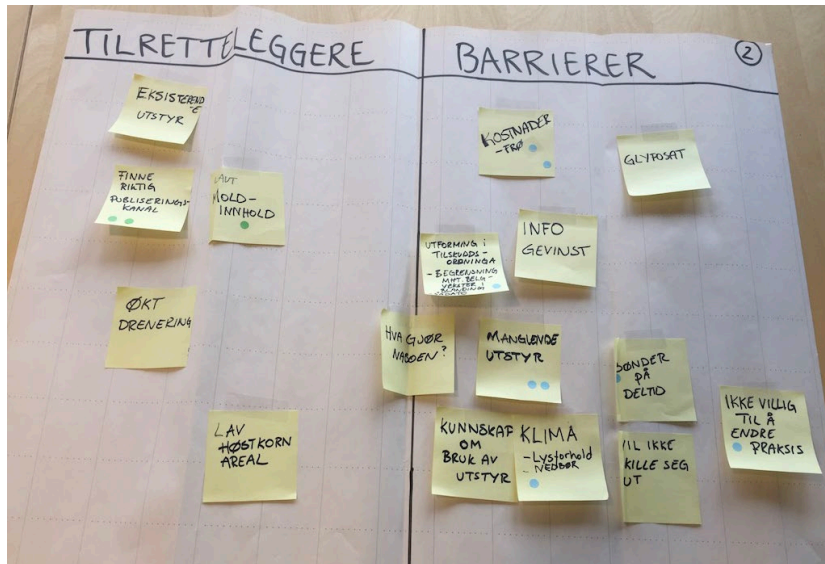 TILRETTELEGGERE
EKSISTEREND
-E
UTSTYR
FINNE
RIKTIG
PUBLISERINGS-
KANAL
LAVT
MOLD-
INNHOLD
ØKT
DRENERING
LAV
HØSTKORN
AREAL
BARRIERER
2
KOSTNADER
-FRØ
GLYFOSAT
INFO
GEVINST
UTFORMING I
TILSKUDDS-
ORDNINGA
- BEGRENSNING
MHT. BELG-
VEKSTER I
BLANDING
HVA GJØR
NABOEN?
MANGLENDE
UTSTYR
BØNDER
PÅ
DELTID
IKKE VILLIG
TIL Å
ENDRE
PRAKSIS
KUNNSKAP
OM
BRUK AV
UTSTYR
KLIMA
-Lysforhold
NEDBØR
VIL IKKE
SKILLE SEG
UT